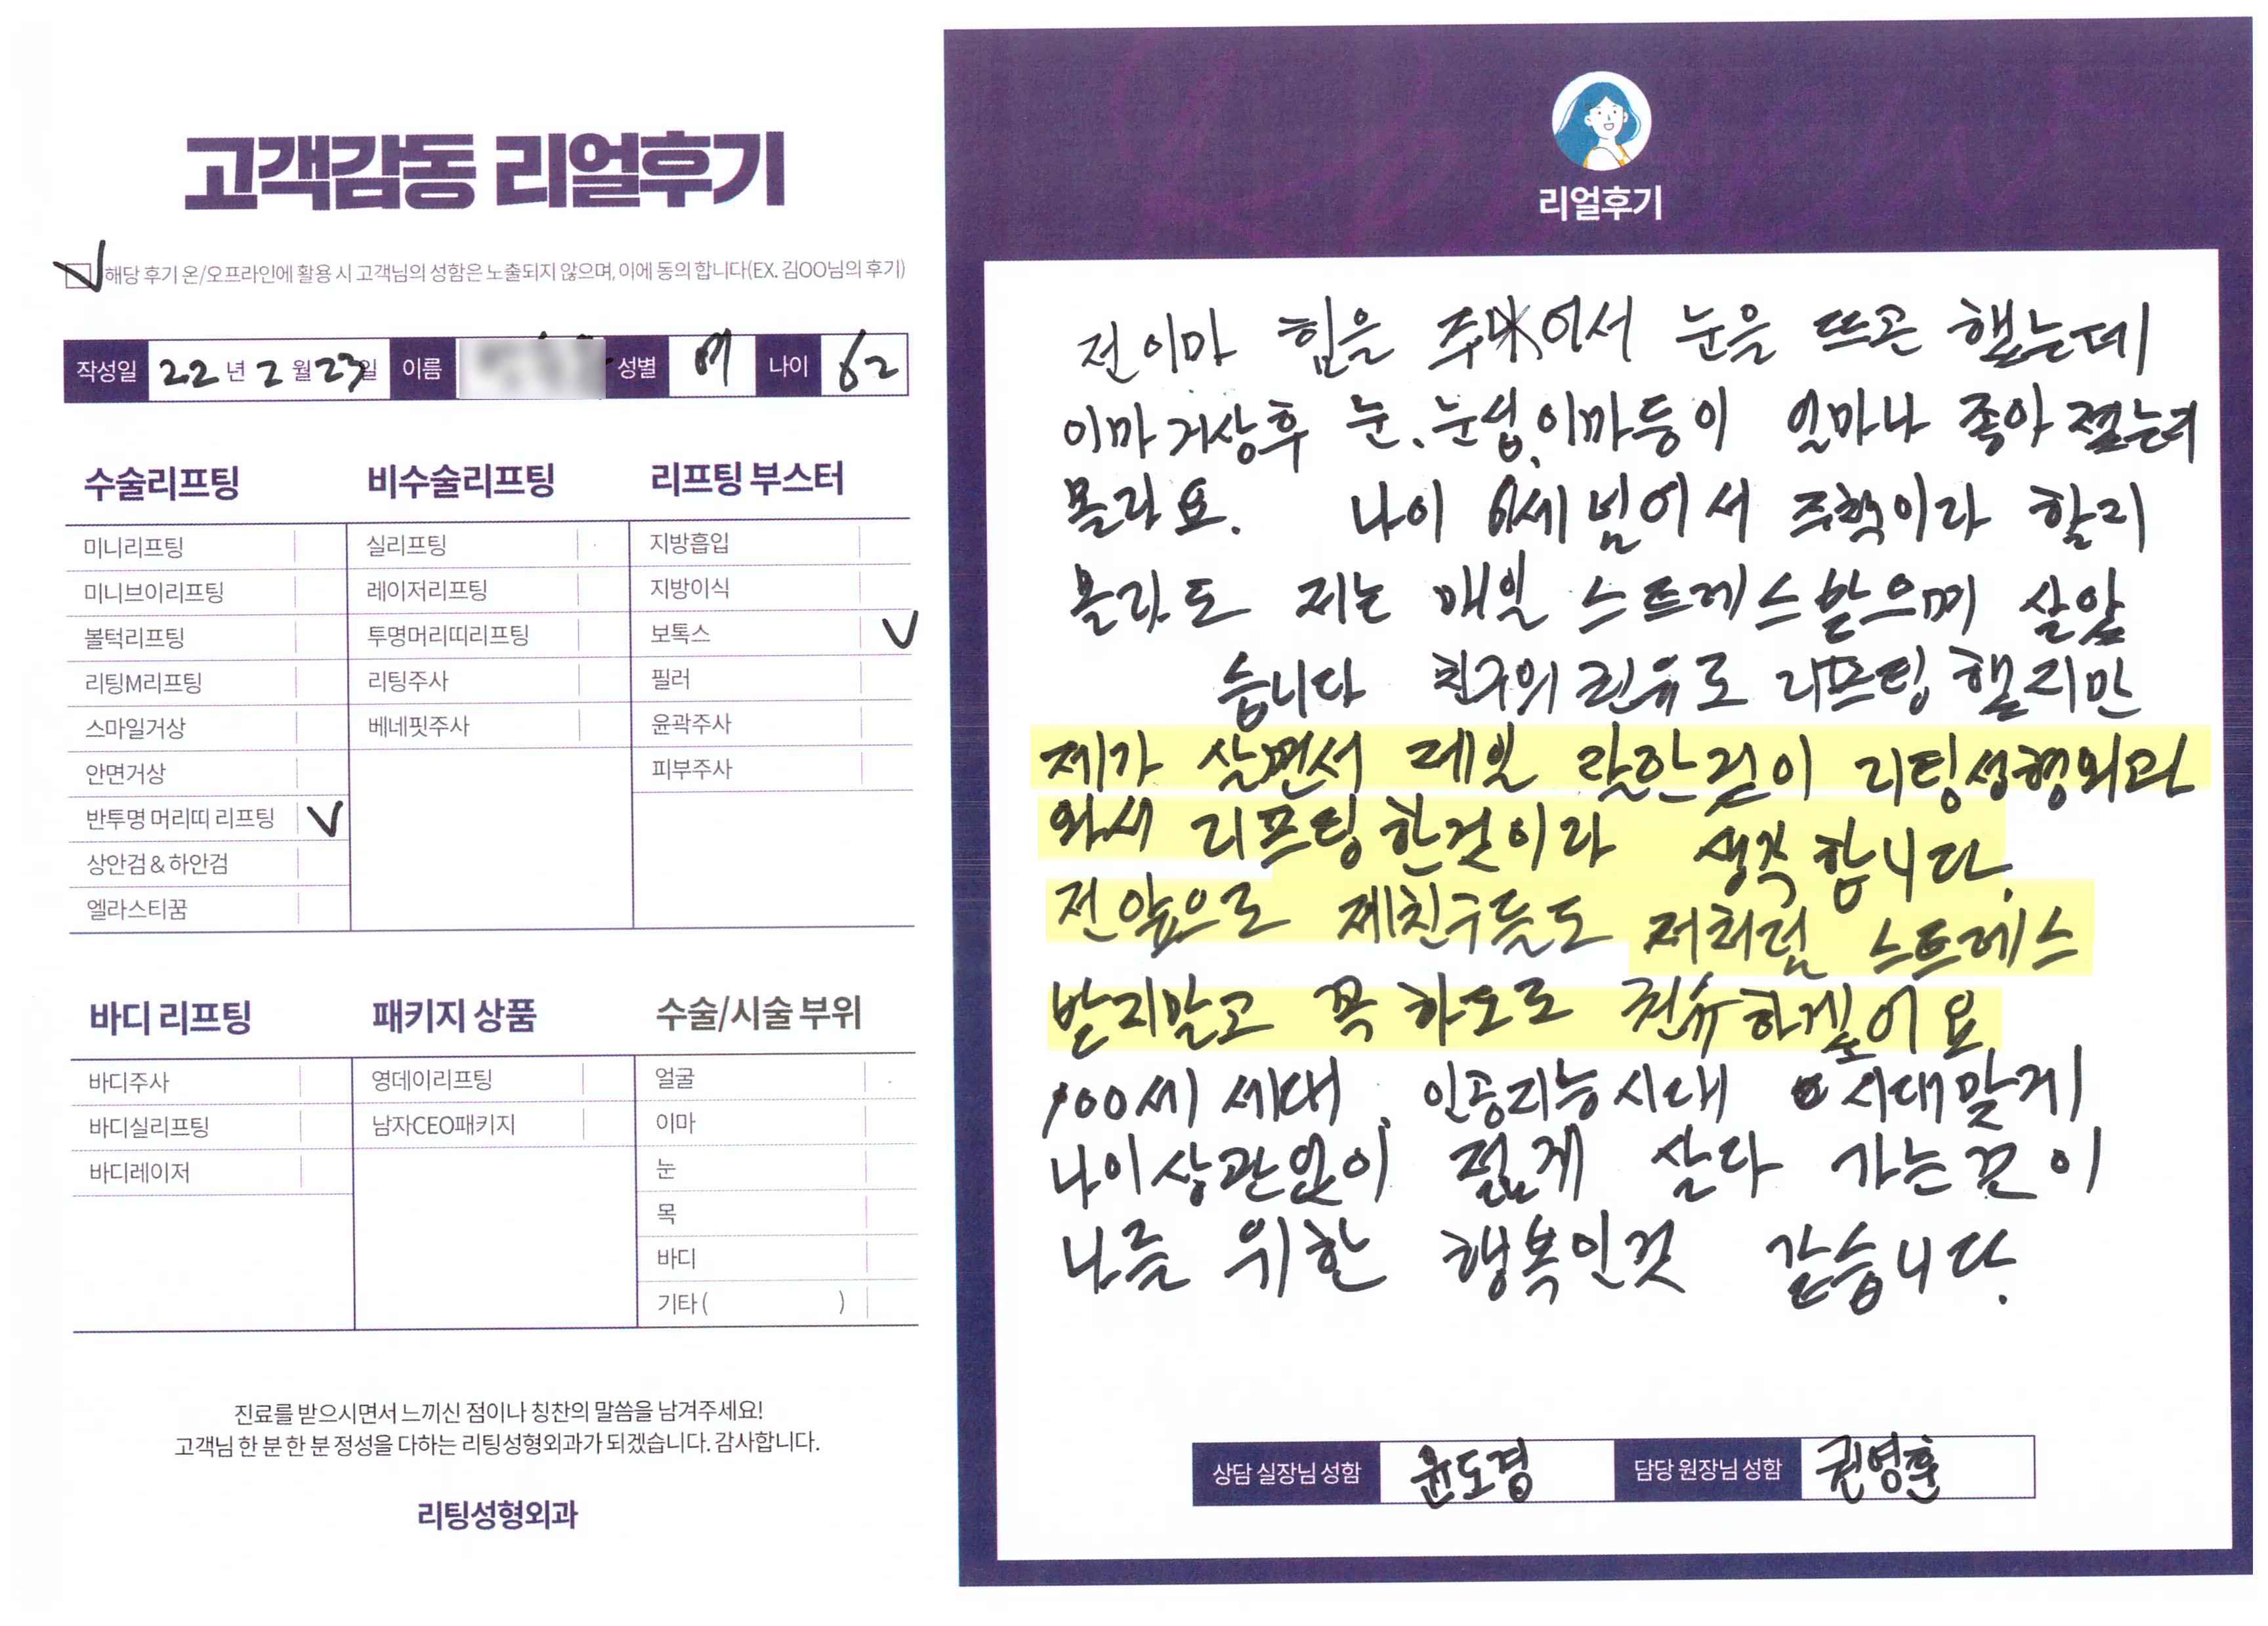 고객감동 리얼후기
해당 후기 온/오프라인에 활용 시 고객님의 성함은 노출되지 않으며, 이에 동의 합니다(EX. 김OO님의 후기)
작성일 22년 2월 23일 이름 성별 여 나이 62
수술리프팅
미니리프팅
미니브이리프팅
볼턱리프팅
리팅M리프팅
스마일거상
안면거상
반투명 머리띠 리프팅 V
상안검 & 하안검
엘라스티꿈
비수술리프팅
실리프팅
레이저리프팅
투명머리띠리프팅
리팅주사
베네핏주사
리프팅 부스터
지방흡입
지방이식
보톡스 V
필러
윤곽주사
피부주사
바디 리프팅
바디주사
바디실리프팅
바디레이저
패키지 상품
영데이리프팅
남자CEO패키지
수술/시술 부위
얼굴
이마
눈
목
바디
기타 ( )
진료를 받으시면서 느끼신 점이나 칭찬의 말씀을 남겨주세요!
고객님 한 분 한 분 정성을 다하는 리팅성형외과가 되겠습니다. 감사합니다.
리팅성형외과
리얼후기
전 이마 힘을 주어서 눈을 뜨곤 했는데
이마 거상후 눈. 눈썹. 이마등이 얼마나 좋아 졌는데
몰라요. 나이 세 넘어서 주책이라 할지
몰라도 저는 매일 스트레스 받으며 살았
습니다 친구의 권유로 리프팅 했지만
제가 살면서 제일 잘한것이 리팅성형외과
와서 리프팅 한것이라 생각 합니다.
전 앞으로 제친구들도 저처럼 스트레스
받지말고 꼭 하도로 권유하겠어요
100세 세대. 인공지능시대 시대맞게
나이상관없이 젊게 살다 가는것이
나를 위한 행복인것 같습니다.
상담 실장님 성함 윤도경 담당 원장님 성함 권영훈